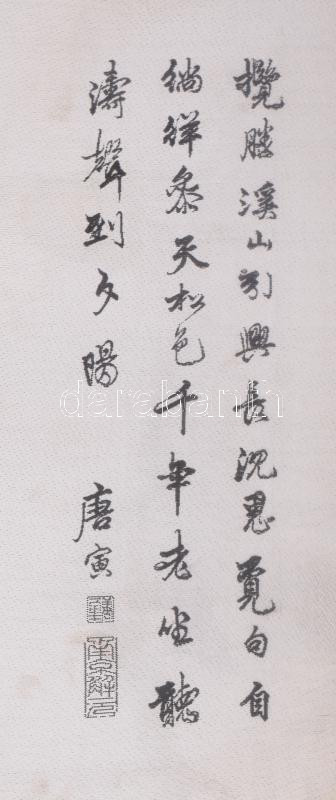 攬勝溪山引興長沉思覓句自
徜徉參天松色千年老坐聽
濤聲到夕陽
唐寅
南京解元
darabanth